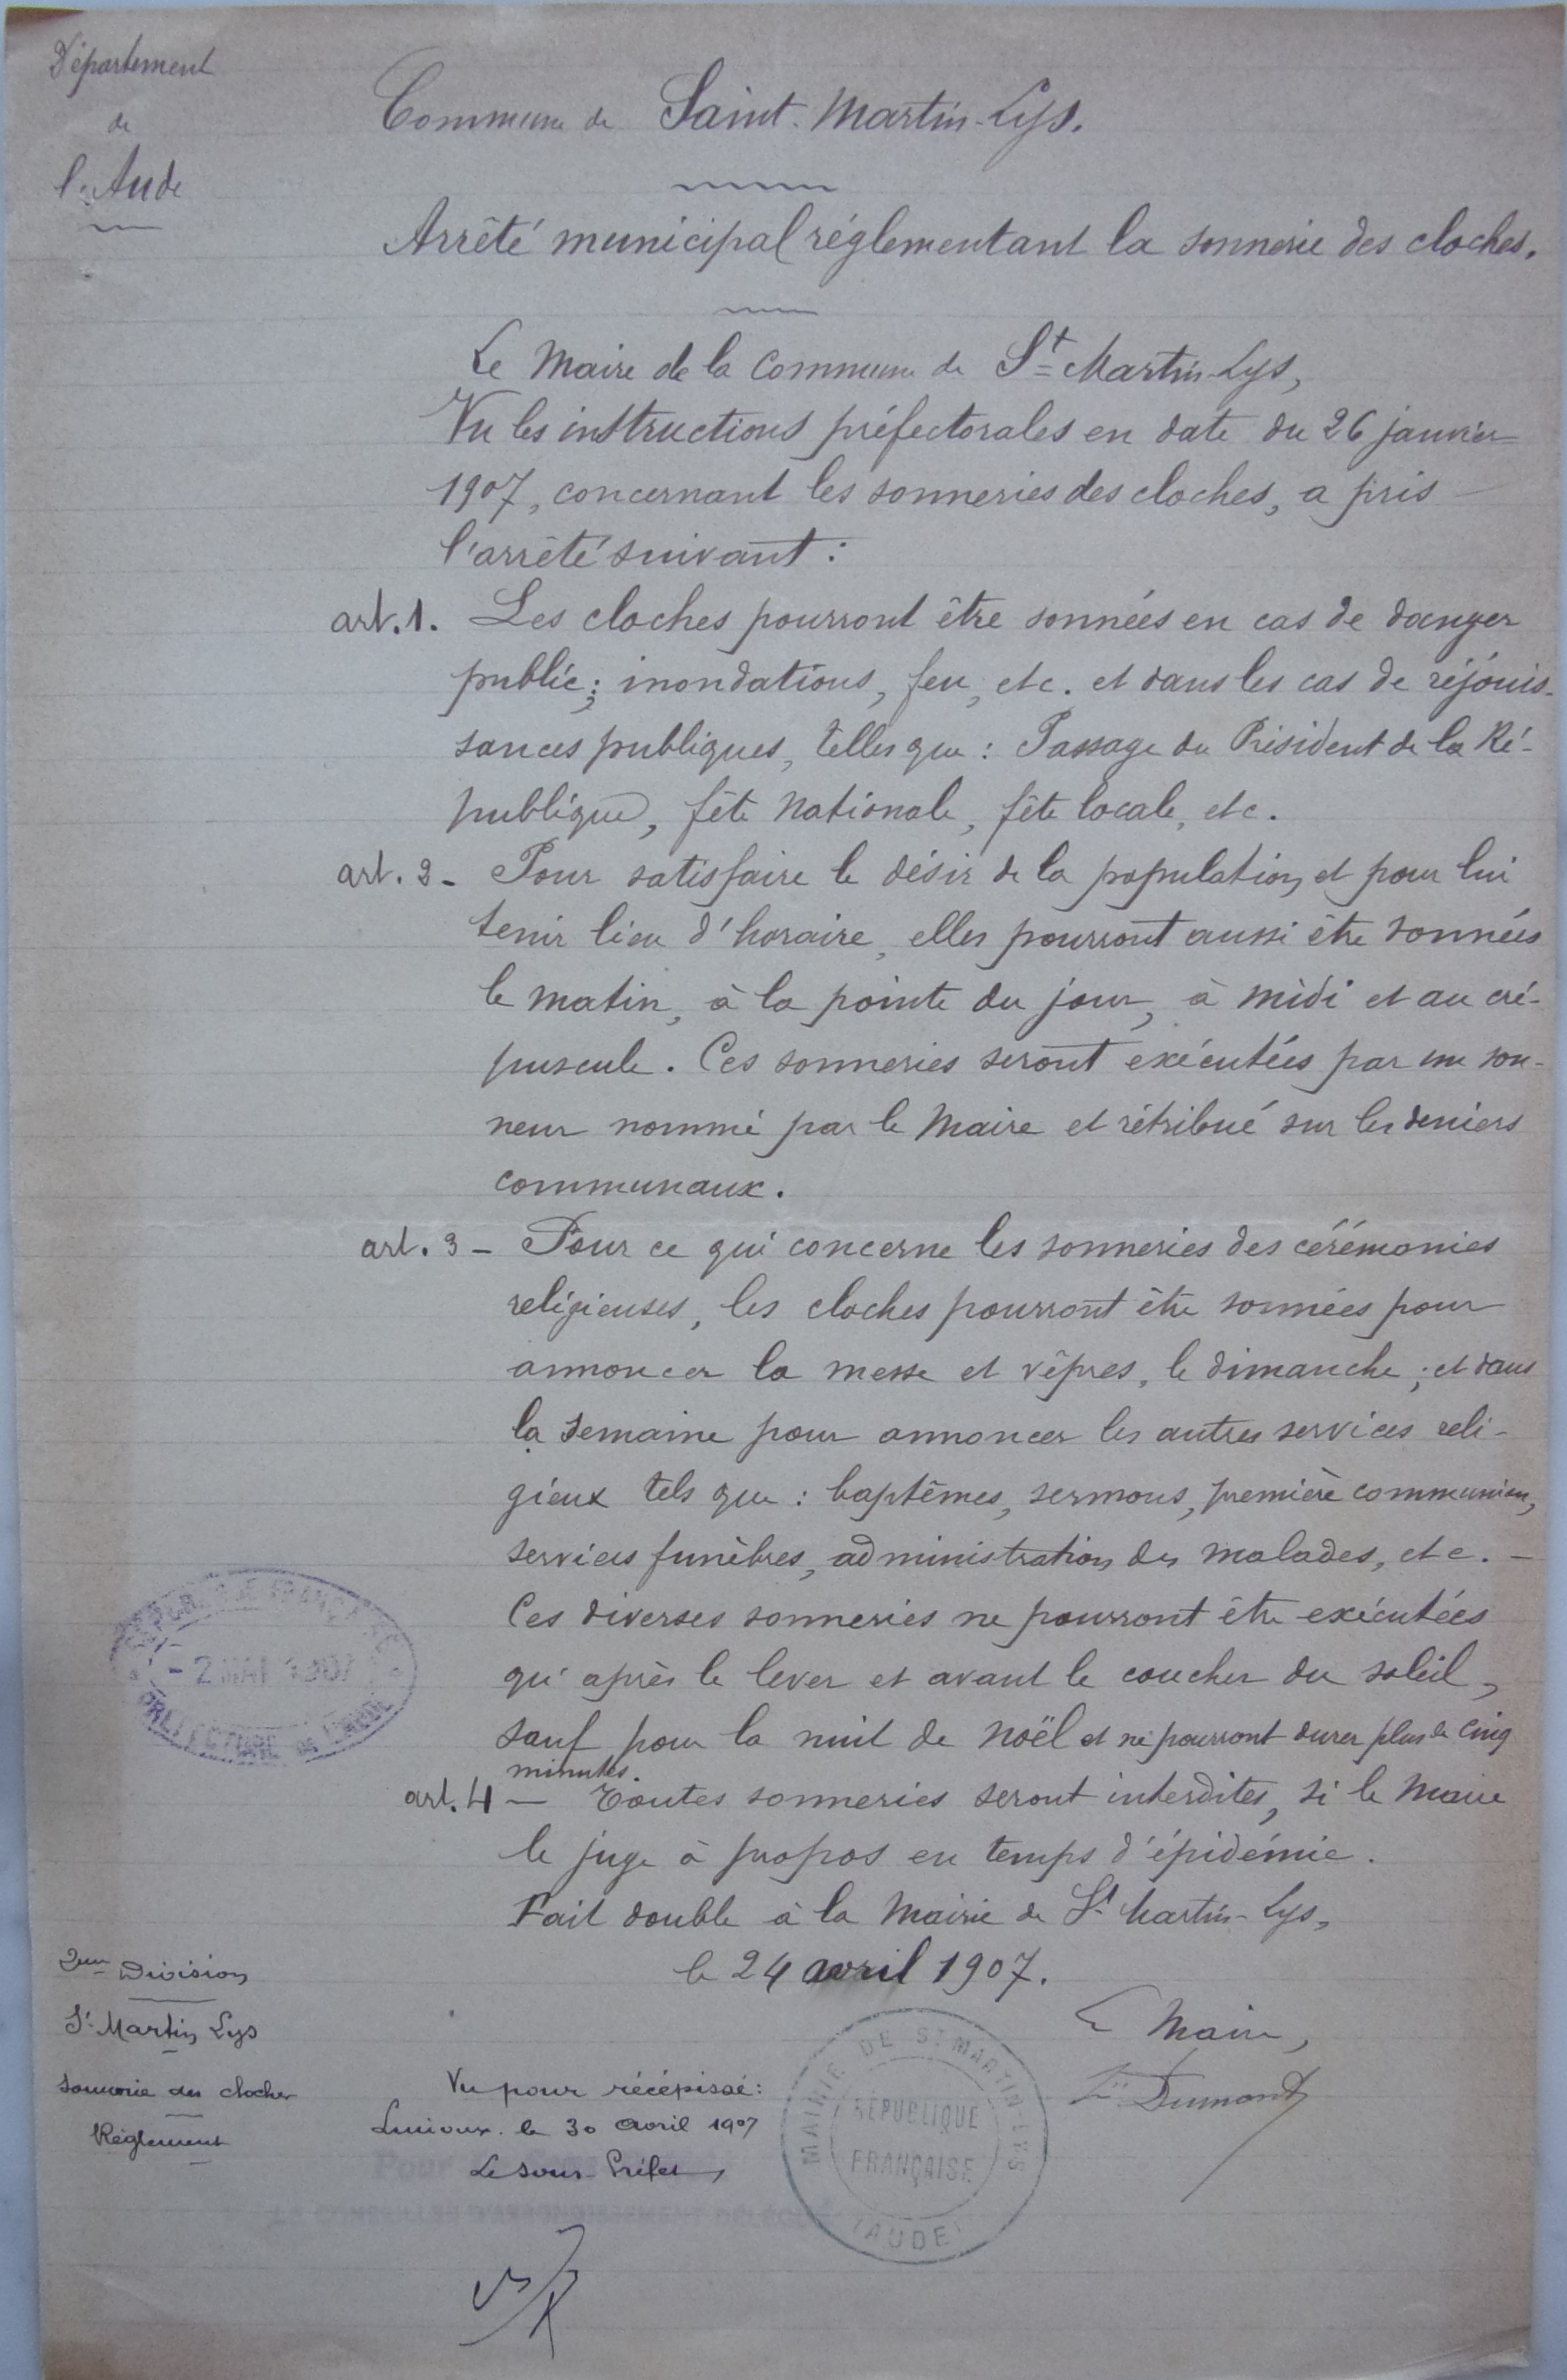 Département
de
l'Aude
Commune de Saint-Martin-Lys.
Arrêté municipal réglementant la sonnerie des cloches.
Le Maire de la Commune de St Martin-Lys,
Vu les instructions préfectorales en date du 26 janvier
1907, concernant les sonneries des cloches, a pris
l'arrêté suivant :
art. 1. Les cloches pourront être sonnées en cas de danger
public ; inondations, feu, etc. et dans les cas de réjouis-
sances publiques, telles que : Passage du Président de la Ré-
publique, fête Nationale, fête locale, etc.
art. 2 - Pour satisfaire le désir de la population et pour lui
tenir lieu d'horaire, elles pourront aussi être sonnées
le matin, à la pointe du jour, à midi et au cré-
puscule. Ces sonneries seront exécutées par un son-
neur nommé par le Maire et rétribué sur les deniers
communaux.
art. 3 - Pour ce qui concerne les sonneries des cérémonies
religieuses, les cloches pourront être sonnées pour
annoncer la messe et vêpres, le dimanche ; et dans
la semaine pour annoncer les autres services reli-
gieux tels que : baptêmes, sermons, première communion,
services funèbres, administration des malades, etc. -
Ces diverses sonneries ne pourront être exécutées
qu'après le lever et avant le coucher du soleil,
sauf pour la nuit de Noël et ne pourront durer plus de cinq
minutes.
art. 4 - Toutes sonneries seront interdites, si le Maire
le juge à propos en temps d'épidémie.
Fait double à la Mairie de St Martin-Lys,
le 24 avril 1907.
Le Maire,
Dumont
RÉPUBLIQUE FRANÇAISE
- 2 MAI 1907
PRÉFECTURE DE L'AUDE
2eme Division
St Martin Lys
Sonnerie des cloches
Règlement
Vu pour récépissé :
Limoux. le 30 Avril 1907
Le Sous-Préfet,
Pour
LE CONSEILLER D'ARRONDISSEMENT DÉLÉGUÉ
MAIRIE DE ST MARTIN-LYS
RÉPUBLIQUE
FRANÇAISE
(AUDE)